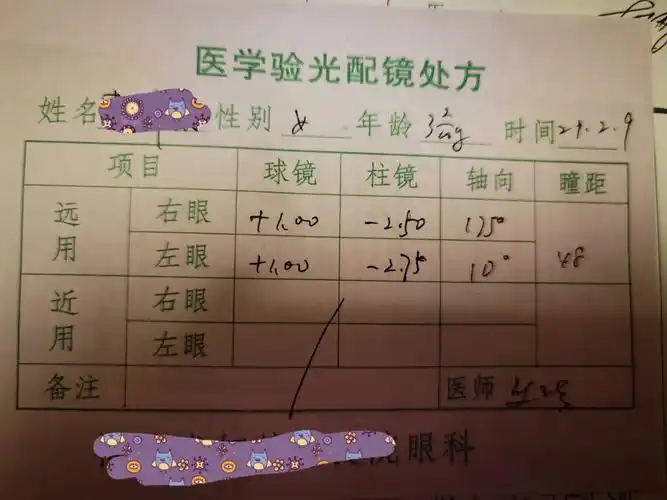 医学验光配镜处方
姓名 性别 女 年龄 3 时间 21.2.9
项目 球镜 柱镜 轴向 瞳距
远用 右眼 +1.00 -2.50 175°
左眼 +1.00 -2.75 10° 48
近用 右眼
左眼
备注 医师
眼科